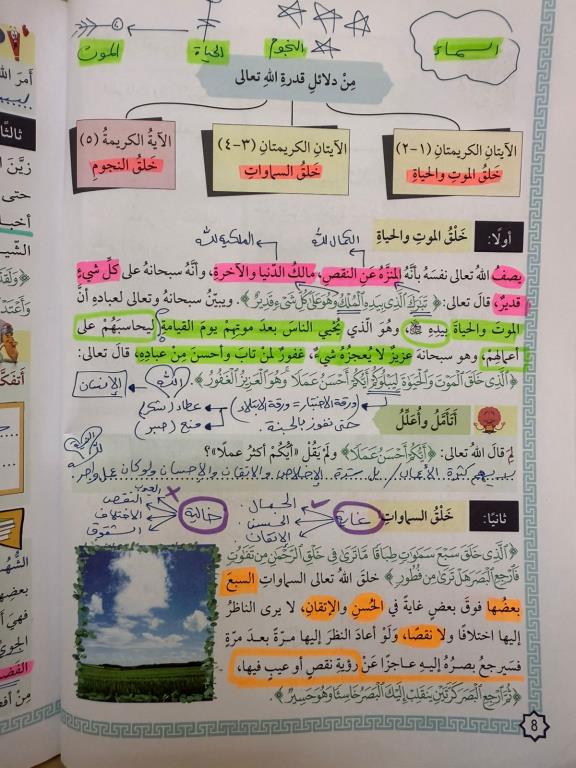 السماء
النجوم
الحياة
الموت
مِنْ دلائلِ قدرةِ اللهِ تعالى
الآيتانِ الكريمتانِ (١-٢)
خَلقُ الموتِ والحياةِ
الآيتانِ الكريمتانِ (٣-٤)
خَلقُ السماواتِ
الآيةُ الكريمةُ (٥)
خَلقُ النجومِ
أولًا: خَلْقُ الموتِ والحياةِ
الكمال لله
الملكية لله
يصفُ اللهُ تعالى نفسَهُ بأنَّهُ المنزّهُ عَنِ النقصِ، مالكُ الدّنيا والآخرةِ، وأنَّهُ سبحانَهُ على كلِّ شيءٍ
قديرٌ، قالَ تعالى: ﴿تَبَٰرَكَ ٱلَّذِي بِيَدِهِ ٱلۡمُلۡكُ وَهُوَ عَلَىٰ كُلِّ شَيۡءٖ قَدِيرٌ﴾. ويبيّنُ سبحانَهُ وتعالى لعبادِهِ أنَّ
الموتَ والحياةَ بيدِهِ ﷻ، وهُوَ الّذي يُحْيي الناسَ بعدَ موتِهِمْ يومَ القيامةِ ليحاسبَهُمْ على
أعمالِهِمْ، وهو سبحانَهُ عزيزٌ لا يُعجزُهُ شيءٌ، غفورٌ لمنْ تابَ وأحسنَ مِنْ عبادِهِ، قالَ تعالى:
﴿ٱلَّذِي خَلَقَ ٱلۡمَوۡتَ وَٱلۡحَيَوٰةَ لِيَبۡلُوَكُمۡ أَيُّكُمۡ أَحۡسَنُ عَمَلٗاۚ وَهُوَ ٱلۡعَزِيزُ ٱلۡغَفُورُ﴾.
الله
الإنسان
(ورقة الاختبار = ورقة الابتلاء)
عطاء (شكر)
منع (صبر)
حتى نفوز بالجنة.
أَتَأَمَّلُ وأُعَلِّلُ
لِمَ قالَ اللهُ تعالى: ﴿أَيُّكُمۡ أَحۡسَنُ عَمَلٗا﴾ ولَمْ يقُلْ «أيُّكُمْ أكثرُ عملًا»؟
ثانيًا: خَلْقُ السماواتِ
غاية
الجمال
الحسن
الإتقان
خالية
النقص
الاختلاف
الشقوق
﴿ٱلَّذِي خَلَقَ سَبۡعَ سَمَٰوَٰتٖ طِبَاقٗاۖ مَّا تَرَىٰ فِي خَلۡقِ ٱلرَّحۡمَٰنِ مِن تَفَٰوُتٖۖ
فَٱرۡجِعِ ٱلۡبَصَرَ هَلۡ تَرَىٰ مِن فُطُورٖ﴾ خلقَ اللهُ تعالى السماواتِ السبعَ
بعضُها فوقَ بعضٍ غايةً في الحُسنِ والإتقانِ، لا يرى الناظرُ
إليها اختلافًا ولا نقصًا، ولَوْ أعادَ النظرَ إليها مرّةً بعدَ مرّةٍ
فسيَرجعُ بصرُهُ إليهِ عاجزًا عَنْ رؤيةِ نقصٍ أو عيبٍ فيها،
﴿ثُمَّ ٱرۡجِعِ ٱلۡبَصَرَ كَرَّتَيۡنِ يَنقَلِبۡ إِلَيۡكَ ٱلۡبَصَرُ خَاسِئٗا وَهُوَ حَسِيرٞ﴾.
8